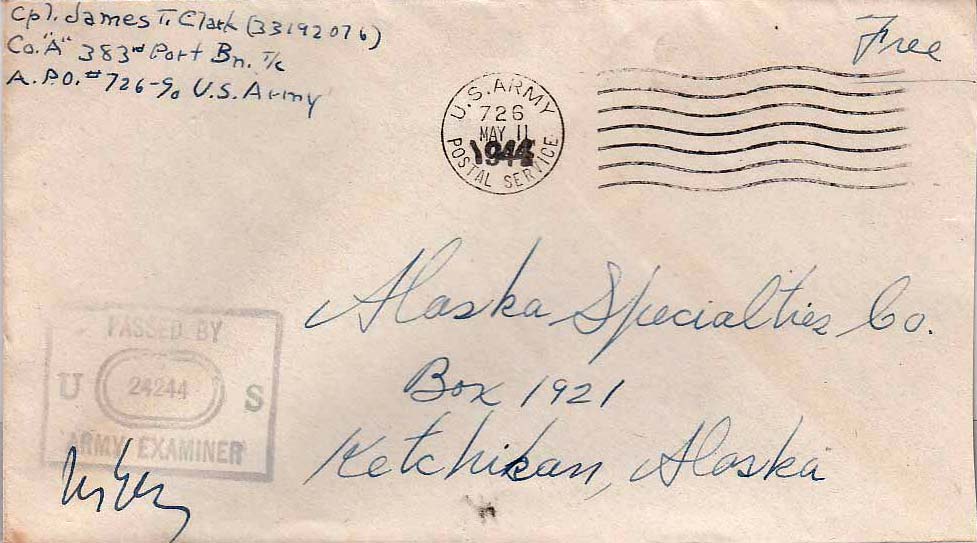 Cpl. James T. Clark (33192076)
Co. "A" 383rd Port Bn. T/c
A.P.O. #726-90 U.S. Army
Free
U.S. ARMY
726
MAY 11
1944
POSTAL SERVICE
Alaska Specialties Co.
Box 1921
Ketchikan, Alaska
PASSED BY
U 24244 S
ARMY EXAMINER